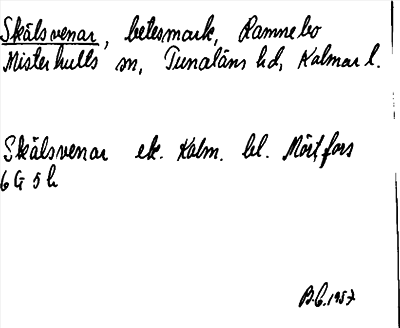 Skälsvenar, betesmark, Ramnebo
Misterhults sn, Tunaläns hd, Kalmar l.
Skälsvenar ek. Kalm. bl. Mörtfors
6 G 5 h
B.G. 1957